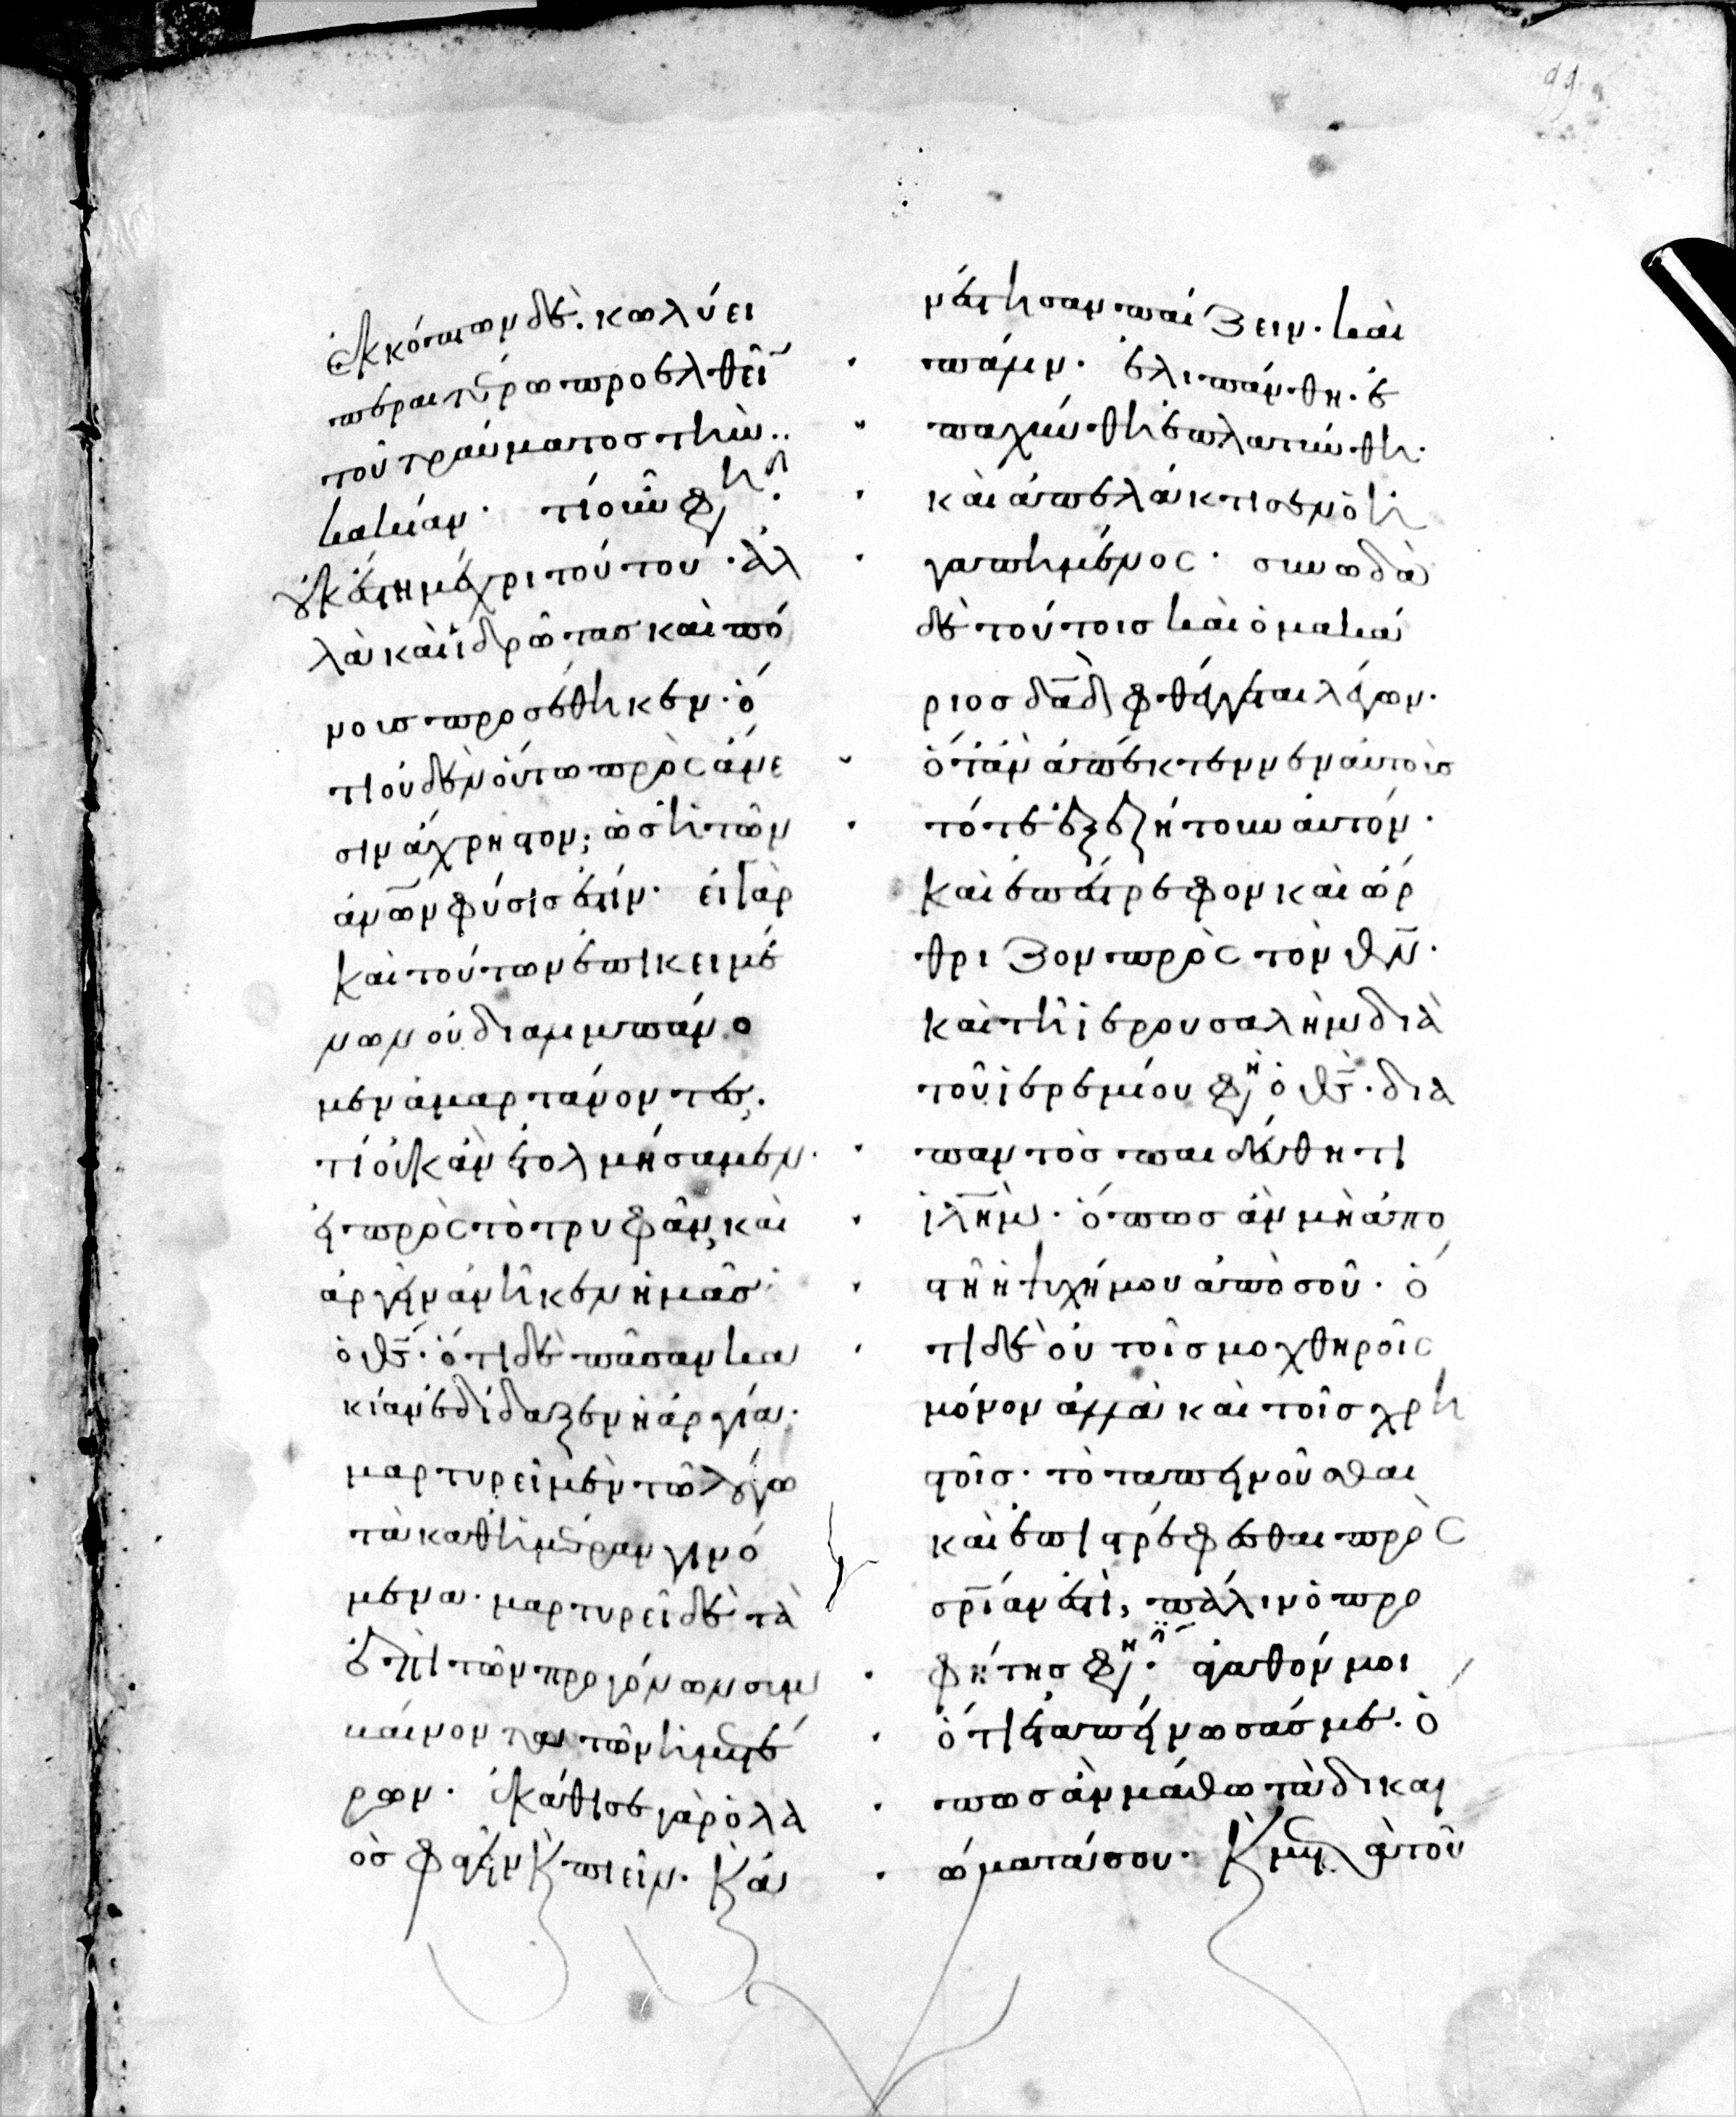 99
ἐκκόπτων δὲ. κωλύει
περαιτέρω προελθεῖν
τοῦ τραύματος τὴν
κακίαν. τί οὖν φησίν.
οὐκ ἔστη μέχρι τούτου. ἀλ
λὰ καὶ ἱδρῶτας καὶ πό
νοις προσέθηκεν. ὅ
τι οὐδὲν οὕτω πρὸς ἄνε
σιν ἄχρηστον; ὡς ἡ τῶν
ἀν̅ων φύσις ἐστίν. εἰ γὰρ
καὶ τούτων ἐπικειμέ
νων οὐ διαλιμπάνο
μεν ἁμαρτάνοντες.
τί οὐκ ἂν ἐτολμήσαμεν.
εἰ πρὸς τὸ τρυφᾶν, καὶ
ἀργεῖν ἀνῆκεν ἡμᾶς
ὁ θ̅ς. ὅτι δὲ πᾶσαν κα
κίαν ἐδίδαξεν ἡ ἀργία.
μαρτυρεῖ μὲν τῶ λόγω
τὰ καθημέραν γινό
μενα. μαρτυρεῖ δὲ τὰ
ἐπὶ τῶν προγόνων συμ
βάινοντα τῶν ἡμετέ
ρων. ἐκάθισε γὰρ ὁ λα
ὸς φαγεῖν κ̀ πιεῖν. κ̀ ἀ
νέστησαν παίζειν. καὶ
πάλιν. ἐλιπάνθη. ἐ
παχύνθη ἐπλατύνθη.
καὶ ἀπελάκτισεν ὁ ἠ
γαπημένος. συνωδὰ
δὲ τούτοις καὶ ὁ μακά
ριος δ̅α̅δ̅ φθέγγεται λέγων.
ὅταν ἀπέκτεννεν αὐτοὺς
τότε ἐξεζήτουν αὐτόν.
καὶ ἐπέστρεφον καὶ ὤρ
θριζον πρὸς τὸν θ̅ν̅.
καὶ τῆ ἱερουσαλὴμ διὰ
τοῦ ἱερεμίου φη ὁ θ̅ς̅. δια
παντὸς παιδεύθητι
ἱ̅λ̅ημ. ὅπως ἂν μὴ ἀπο
στῆ ἡ ψυχή μου ἀπὸ σοῦ. ὅ
τι δὲ οὐ τοῖς μοχθηροῖς
μόνον ἀλλὰ καὶ τοῖς χρη
στοῖς. τὸ ταπεινοῦσθαι
καὶ ἐπιστρέφεσθαι πρὸς
σ̅ρ̅ίαν ἐστὶ, πάλιν ὁ προ
φήτης φησίν. ἀγαθόν μοι
ὅτι ἐταπείνωσάς με. ὅ
πως ἂν μάθω τὰ δικαι
ώματά σου. κ̀ μετ αὐτοῦ